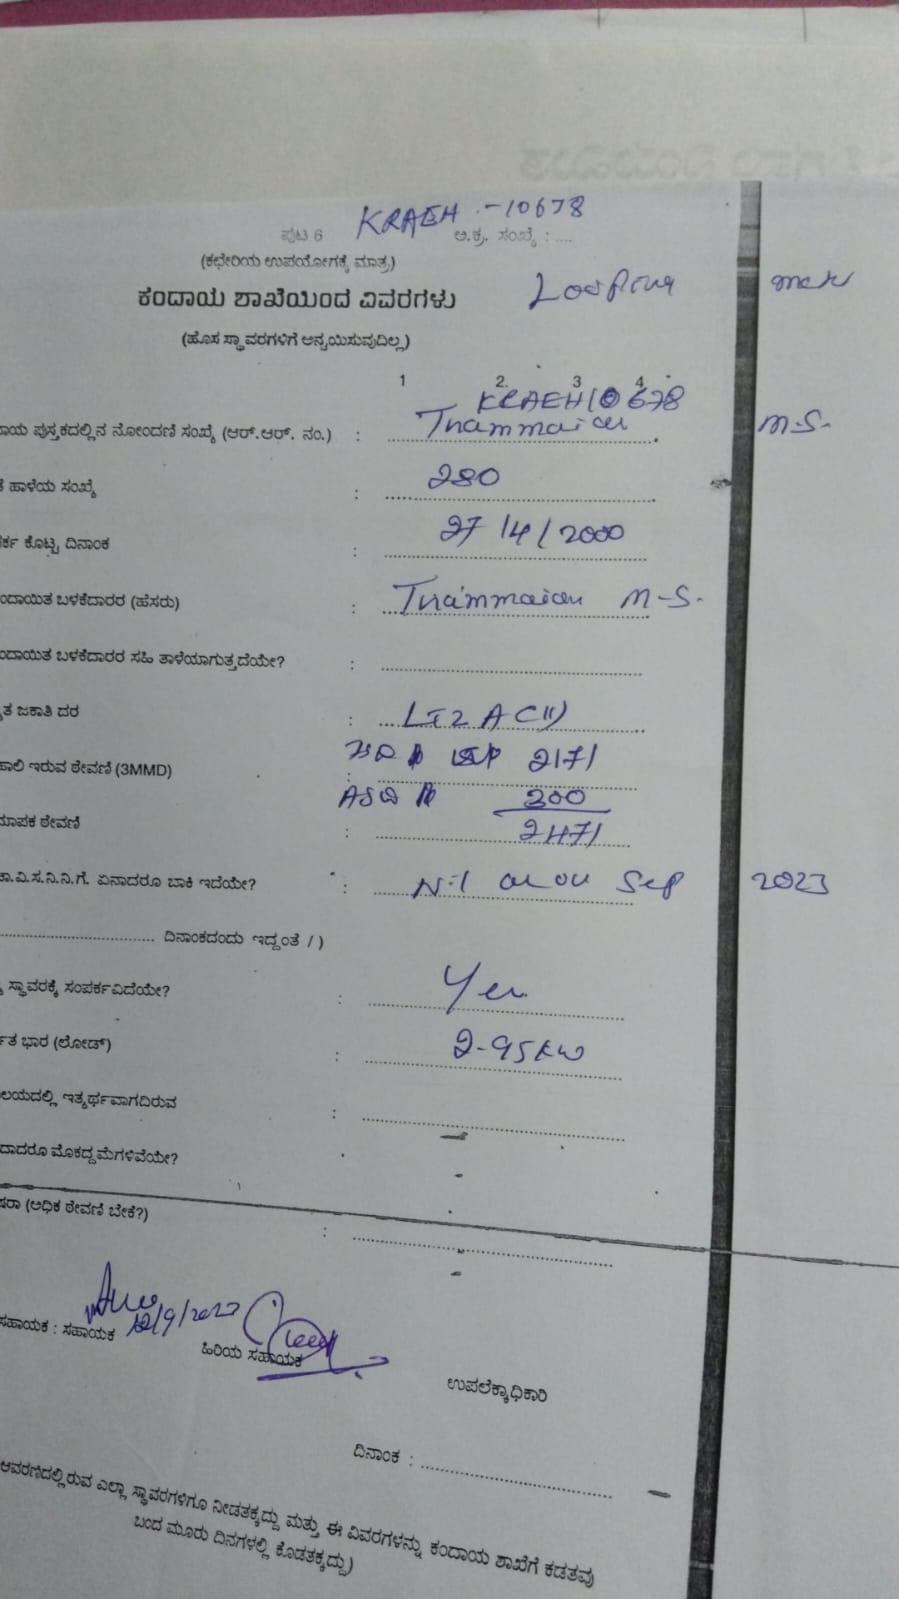 KRAEH - 10678
ಪುಟ 6 ಅ.ಕ್ರ. ಸಂಖ್ಯೆ : ....
(ಕಛೇರಿಯ ಉಪಯೋಗಕ್ಕೆ ಮಾತ್ರ)
ಕಂದಾಯ ಶಾಖೆಯಿಂದ ವಿವರಗಳು
(ಹೊಸ ಸ್ಥಾವರಗಳಿಗೆ ಅನ್ವಯಿಸುವುದಿಲ್ಲ)
1 2 3 4
KRAEH10678
ಾಯ ಪುಸ್ತಕದಲ್ಲಿನ ನೋಂದಣಿ ಸಂಖ್ಯೆ (ಆರ್.ಆರ್. ನಂ.) : Thammaiah M.S.
ಹಾಳೆಯ ಸಂಖ್ಯೆ : 280
ರ್ಕ ಕೊಟ್ಟ ದಿನಾಂಕ : 27/4/2000
ಂದಾಯಿತ ಬಳಕೆದಾರರ (ಹೆಸರು) : Thammaiah M-S-
ಂದಾಯಿತ ಬಳಕೆದಾರರ ಸಹಿ ತಾಳೆಯಾಗುತ್ತದೆಯೇ? :
ತ ಜಕಾತಿ ದರ : LT2 A (II)
ಾಲಿ ಇರುವ ಠೇವಣಿ (3MMD) : 2171
ASD 200
ಮಾಪಕ ಠೇವಣಿ : 2471
ಾ.ವಿ.ಸ.ನಿ.ನಿ.ಗೆ. ಏನಾದರೂ ಬಾಕಿ ಇದೆಯೇ? : Nil as on Sep 2023
........ ದಿನಾಂಕದಂದು ಇದ್ದಂತೆ / )
ಸ್ಥಾವರಕ್ಕೆ ಸಂಪರ್ಕವಿದೆಯೇ? : Yes
ತ ಭಾರ (ಲೋಡ್) : 2-95kw
ಲಯದಲ್ಲಿ ಇತ್ಯರ್ಥವಾಗದಿರುವ :
ದಾದರೂ ಮೊಕದ್ದಮೆಗಳಿವೆಯೇ?
ಷರಾ (ಅಧಿಕ ಠೇವಣಿ ಬೇಕೆ?) :
12/9/2023
ಸಹಾಯಕ : ಸಹಾಯಕ ಹಿರಿಯ ಸಹಾಯಕ ಉಪಲೆಕ್ಕಾಧಿಕಾರಿ
ದಿನಾಂಕ : ........
ಆವರಣದಲ್ಲಿರುವ ಎಲ್ಲಾ ಸ್ಥಾವರಗಳಿಗೂ ನೀಡತಕ್ಕದ್ದು ಮತ್ತು ಈ ವಿವರಗಳನ್ನು ಕಂದಾಯ ಶಾಖೆಗೆ ಕಡತವು
ಬಂದ ಮೂರು ದಿನಗಳಲ್ಲಿ ಕೊಡತಕ್ಕದ್ದು)